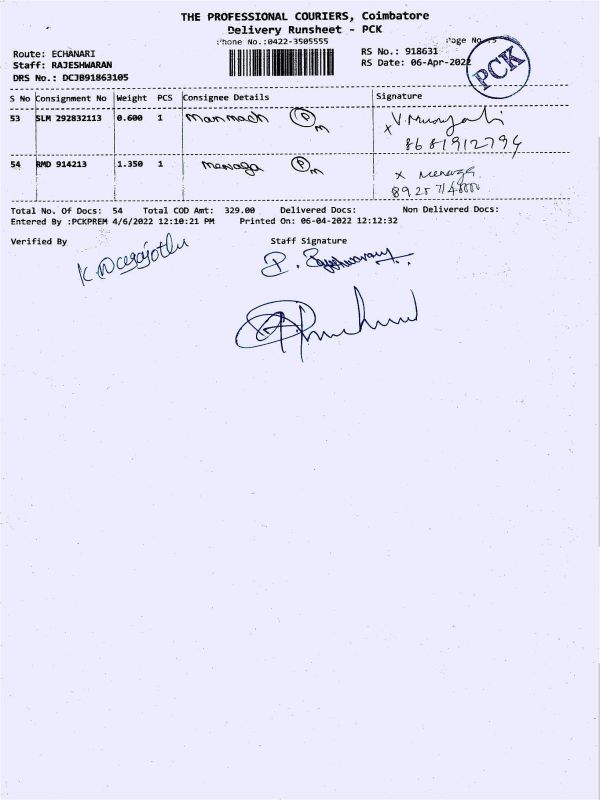 THE PROFESSIONAL COURIERS, Coimbatore
Delivery Runsheet - PCK
Phone No.:0422-3505555
Page No
Route: ECHANARI
RS No.: 918631
Staff: RAJESHWARAN
RS Date: 06-Apr-2022
PCK
DRS No.: DCJB91863105
S No Consignment No Weight PCS Consignee Details Signature
53 SLM 292832113 0.600 1 manmach P M
8681912794
54 RMD 914213 1.350 1 menaga P M x menaga
Total No. Of Docs: 54 Total COD Amt: 329.00 Delivered Docs: Non Delivered Docs:
Entered By :PCKPREM 4/6/2022 12:10:21 PM Printed On: 06-04-2022 12:12:32
Verified By Staff Signature